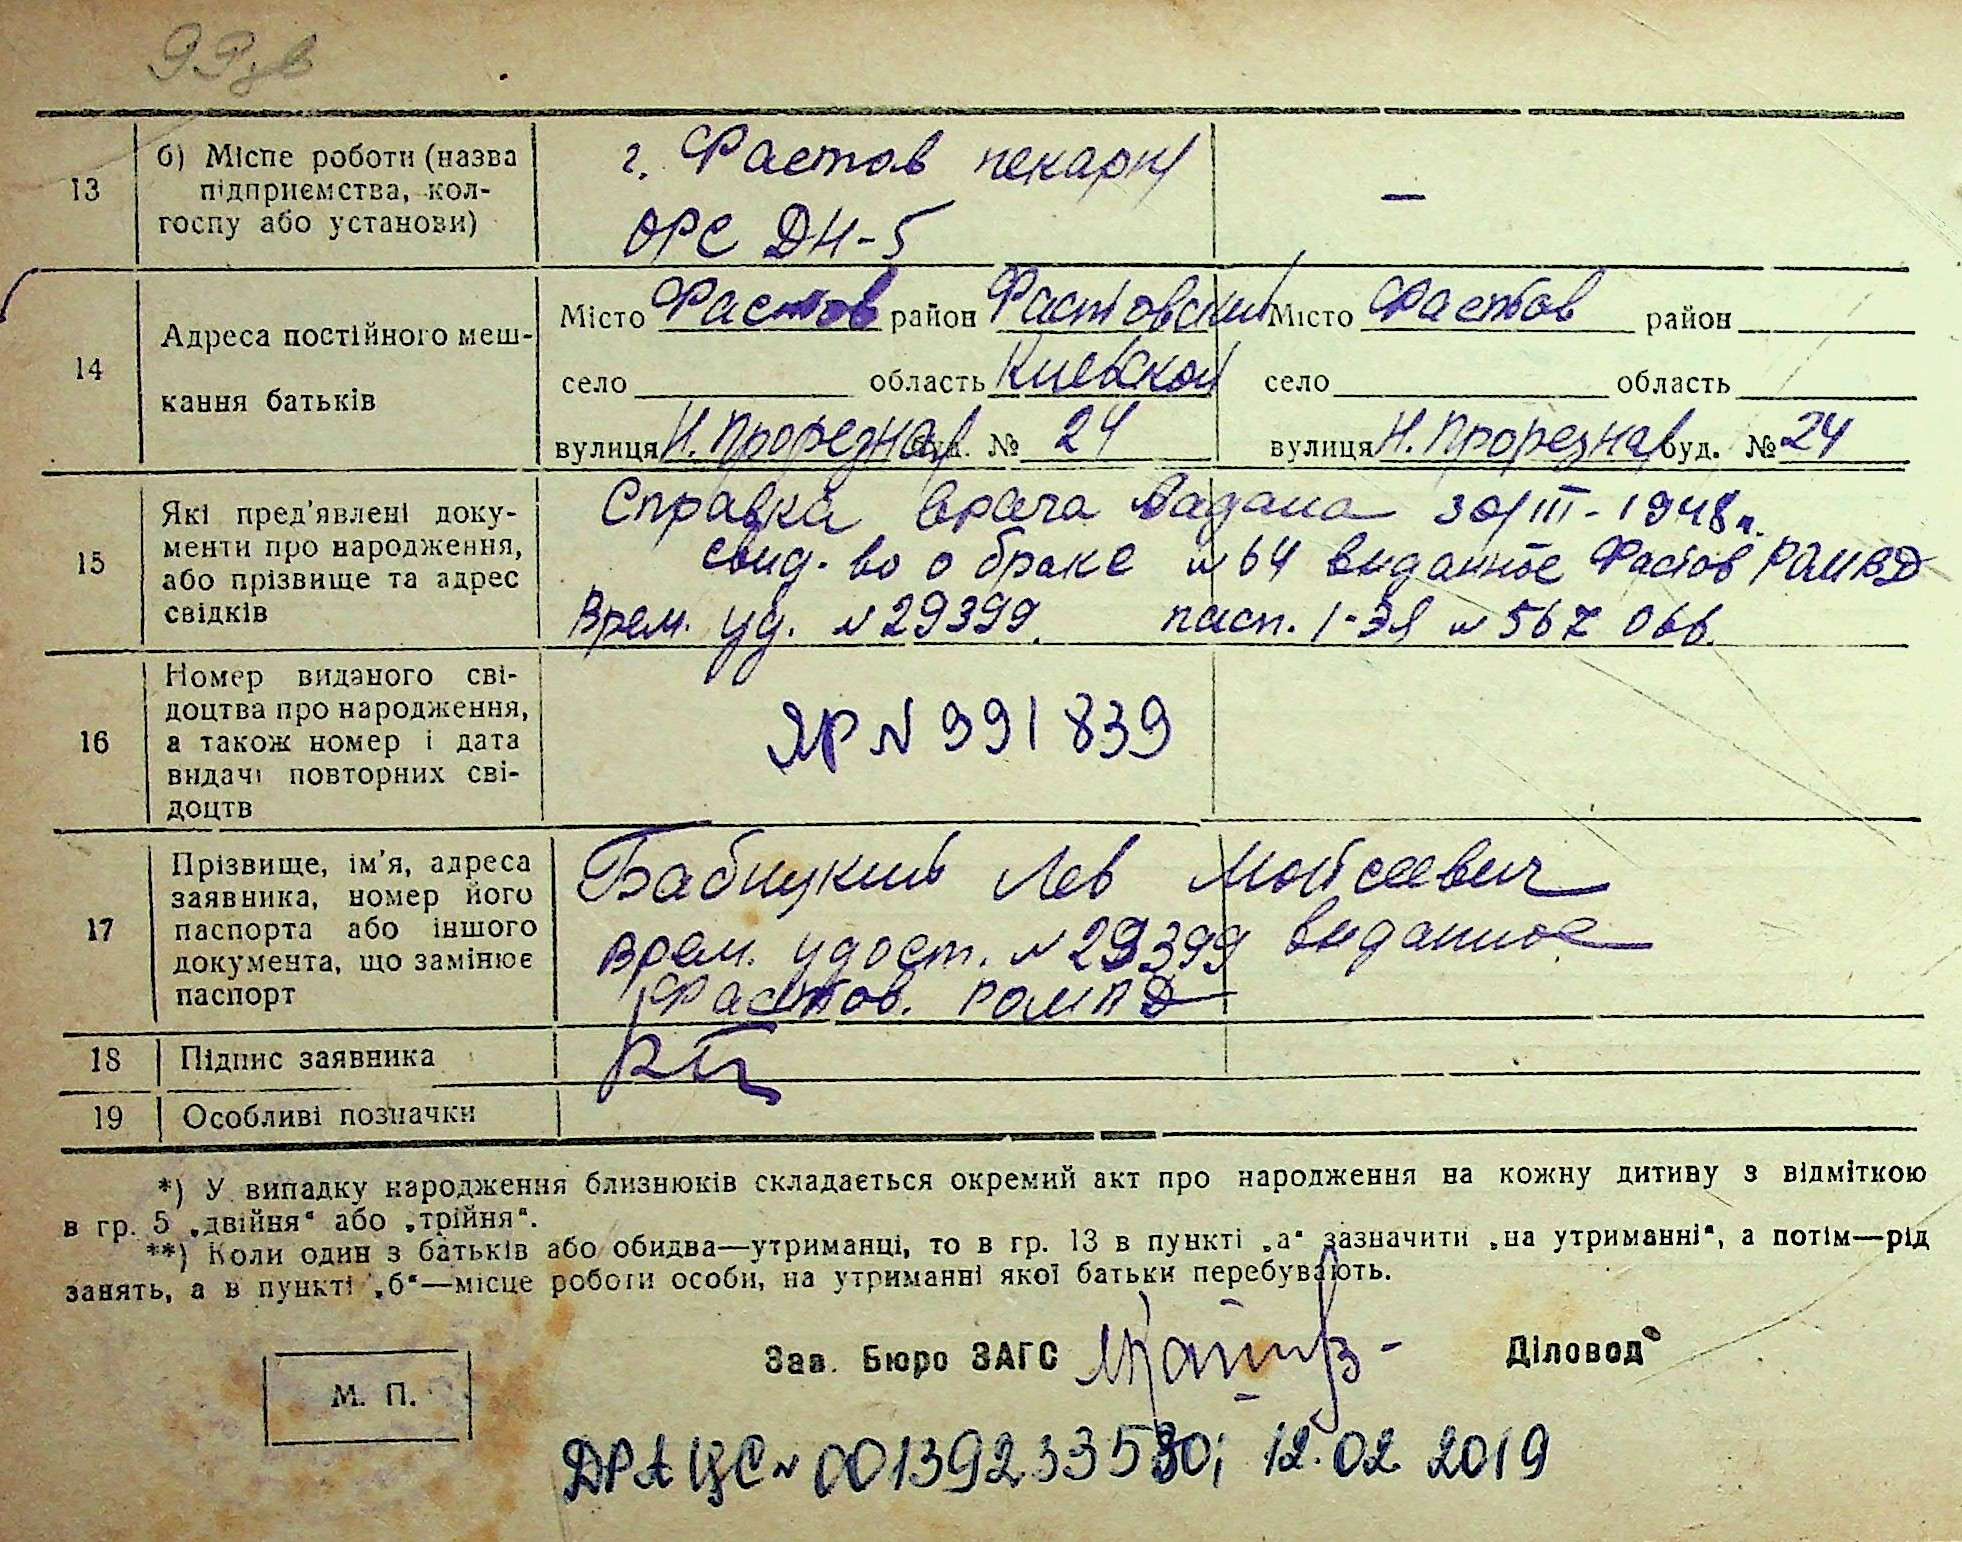 99 зв
13 б) Місце роботи (назва підприємства, колгоспу або установи)
г. Фастов пекарн
ОРС ДН-5
—
14 Адреса постійного мешкання батьків
Місто Фастов район Фастовский
село область Киевской
вулиця Н. Прорезная буд. № 24
Місто Фастов район
село область
вулиця Н. Прорезная буд. № 24
15 Які пред'явлені документи про народження, або прізвище та адрес свідків
Справка врача Вадана 30/III-1948 г.
свид-во о браке №64 виданное Фастов РОМВД
Врем. уд. №29399. пасп. I-ЭЯ №567066.
16 Номер виданого свідоцтва про народження, а також номер і дата видачі повторних свідоцтв
ЯР №991839
17 Прізвище, ім'я, адреса заявника, номер його паспорта або іншого документа, що замінює паспорт
Бабицкий Лев Мойсеевич
Врем. удост. №29399 виданное
Фастов.
18 Підпис заявника
19 Особливі позначки
*) У випадку народження близнюків складається окремий акт про народження на кожну дитину з відміткою
в гр. 5 „двійня“ або „трійня“.
**) Коли один з батьків або обидва—утриманці, то в гр. 13 в пункті „а“ зазначити „на утриманні“, а потім—рід
занять, а в пункті „б“—місце роботи особи, на утриманні якої батьки перебувають.
Зав. Бюро ЗАГС
Діловод
М. П.
ДРАЦС № 00139233530; 12.02 2019